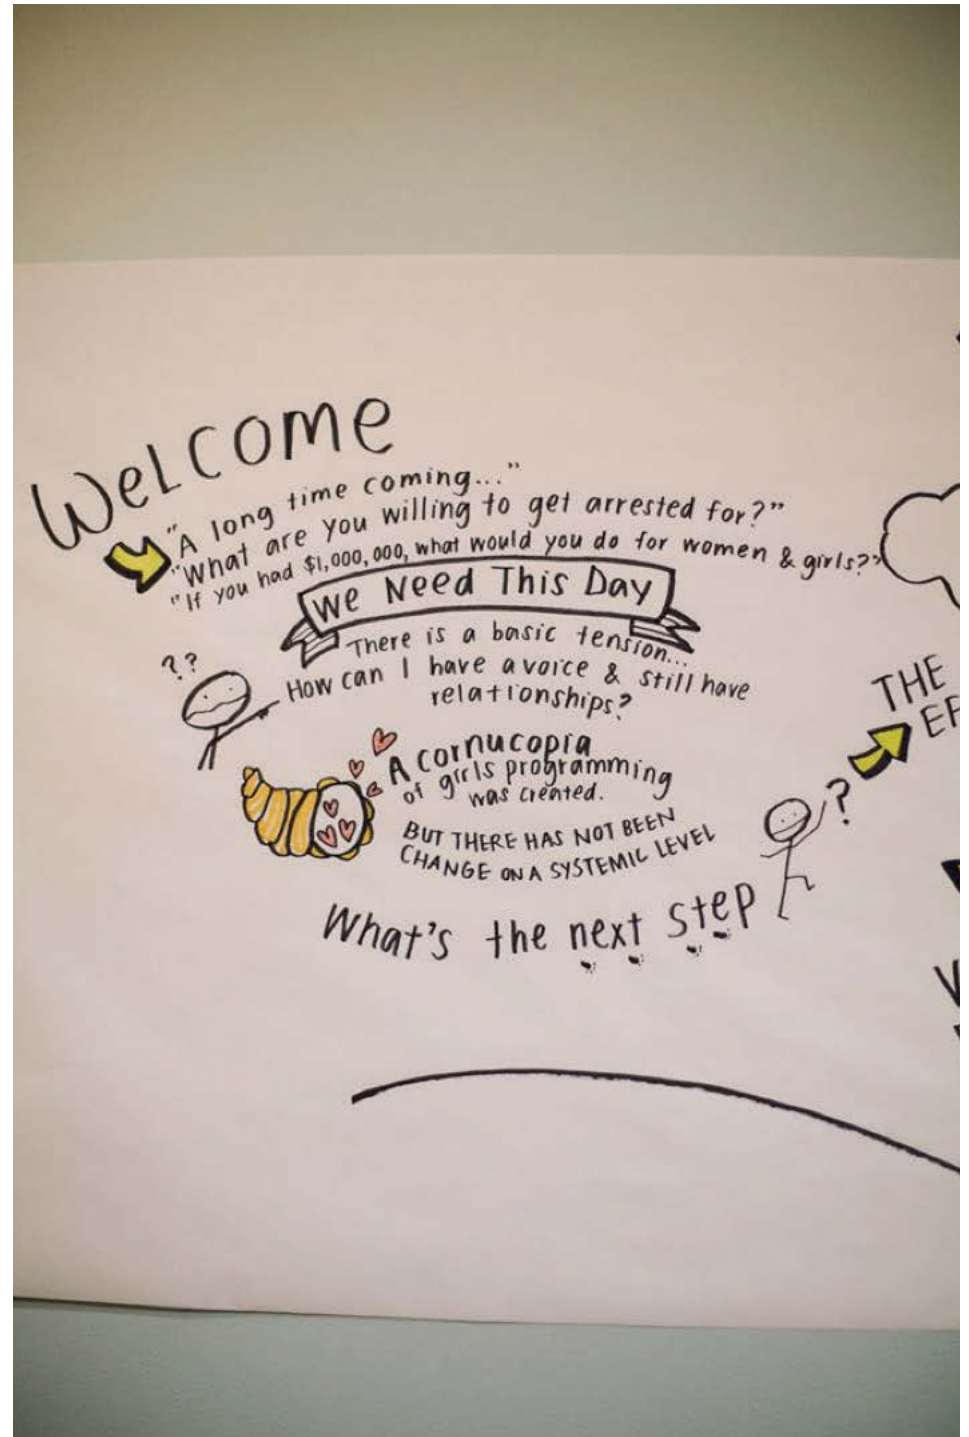 Welcome
"A long time coming..."
"What are you willing to get arrested for?"
"If you had $1,000,000, what would you do for women & girls?"
We Need This Day
There is a basic tension...
How can I have a voice & still have
relationships?
??
A cornucopia
of girls programming
was created.
BUT THERE HAS NOT BEEN
CHANGE ON A SYSTEMIC LEVEL
What's the next step
?
THE